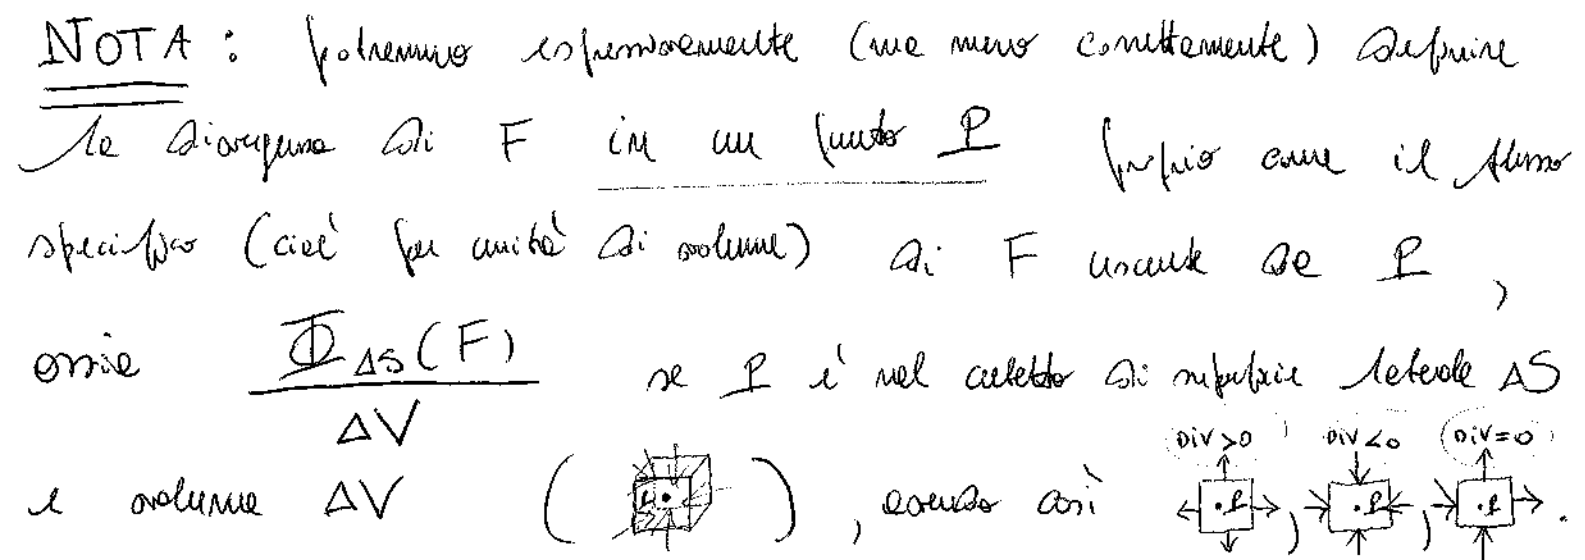 NOTA : potremmo espressivamente (ma meno correttamente) definire
la divergenza di F in un punto P proprio come il flusso
specifico (cioè per unità di volume) di F uscente da P ,
ossia Φ_ΔS(F) / ΔV se P è nel cubetto di superficie laterale ΔS
DIV>0 DIV<0 DIV=0
e volume ΔV ( ) , avendo così .P , .P , .P .